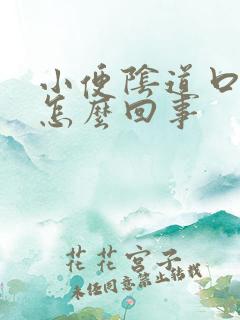 小便陰道口
怎麼回事
花花宮子
未经同意禁止转载